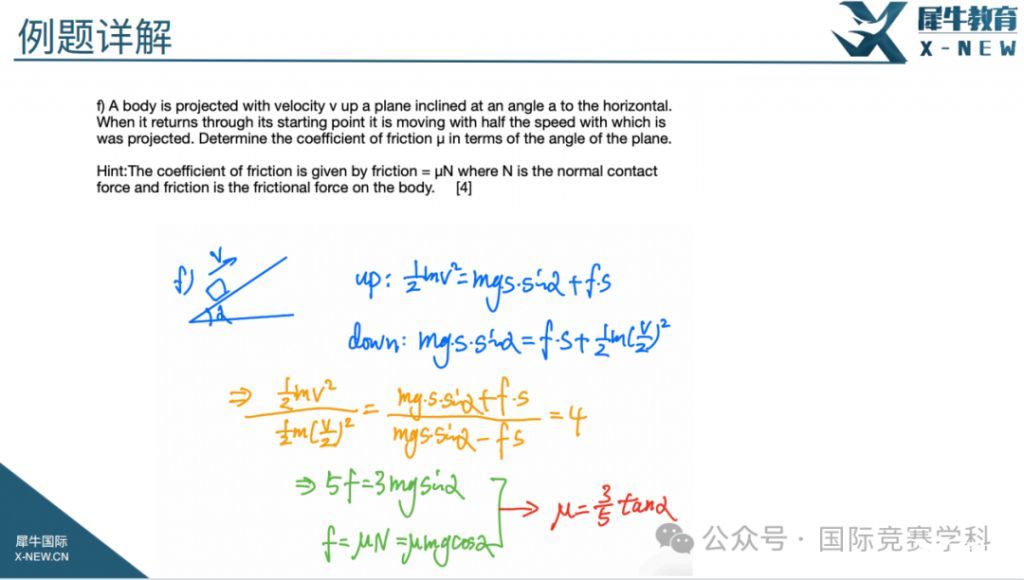 例题详解
犀牛教育
X-NEW
f) A body is projected with velocity v up a plane inclined at an angle a to the horizontal.
When it returns through its starting point it is moving with half the speed with which is
was projected. Determine the coefficient of friction µ in terms of the angle of the plane.
Hint:The coefficient of friction is given by friction = µN where N is the normal contact
force and friction is the frictional force on the body. [4]
f) v α
up: ½mv² = mg·s·sinα + f·s
down: mg·s·sinα = f·s + ½m(v/2)²
⇒ ½mv² / ½m(v/2)² = (mg·s·sinα + f·s) / (mgs·sinα - fs) = 4
⇒ 5f = 3mgsinα
f = μN = μmgcosα
→ μ = 3/5 tanα
犀牛国际
X-NEW.CN
公众号 · 国际竞赛学科